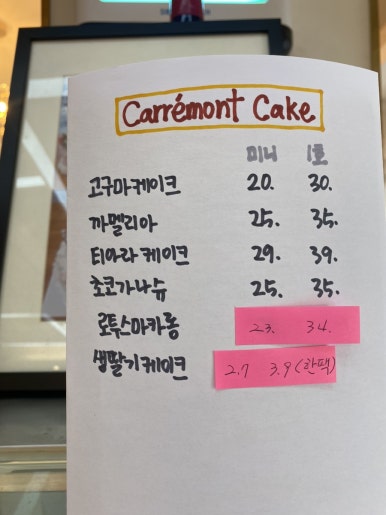 Carrémont Cake
미니 1호
고구마케이크 20. 30.
까멜리아 25. 35.
티아라케이크 29. 39.
초코가나슈 25. 35.
로투스마카롱 23. 34.
생딸기케이크 2.7 3.9 (한팩)